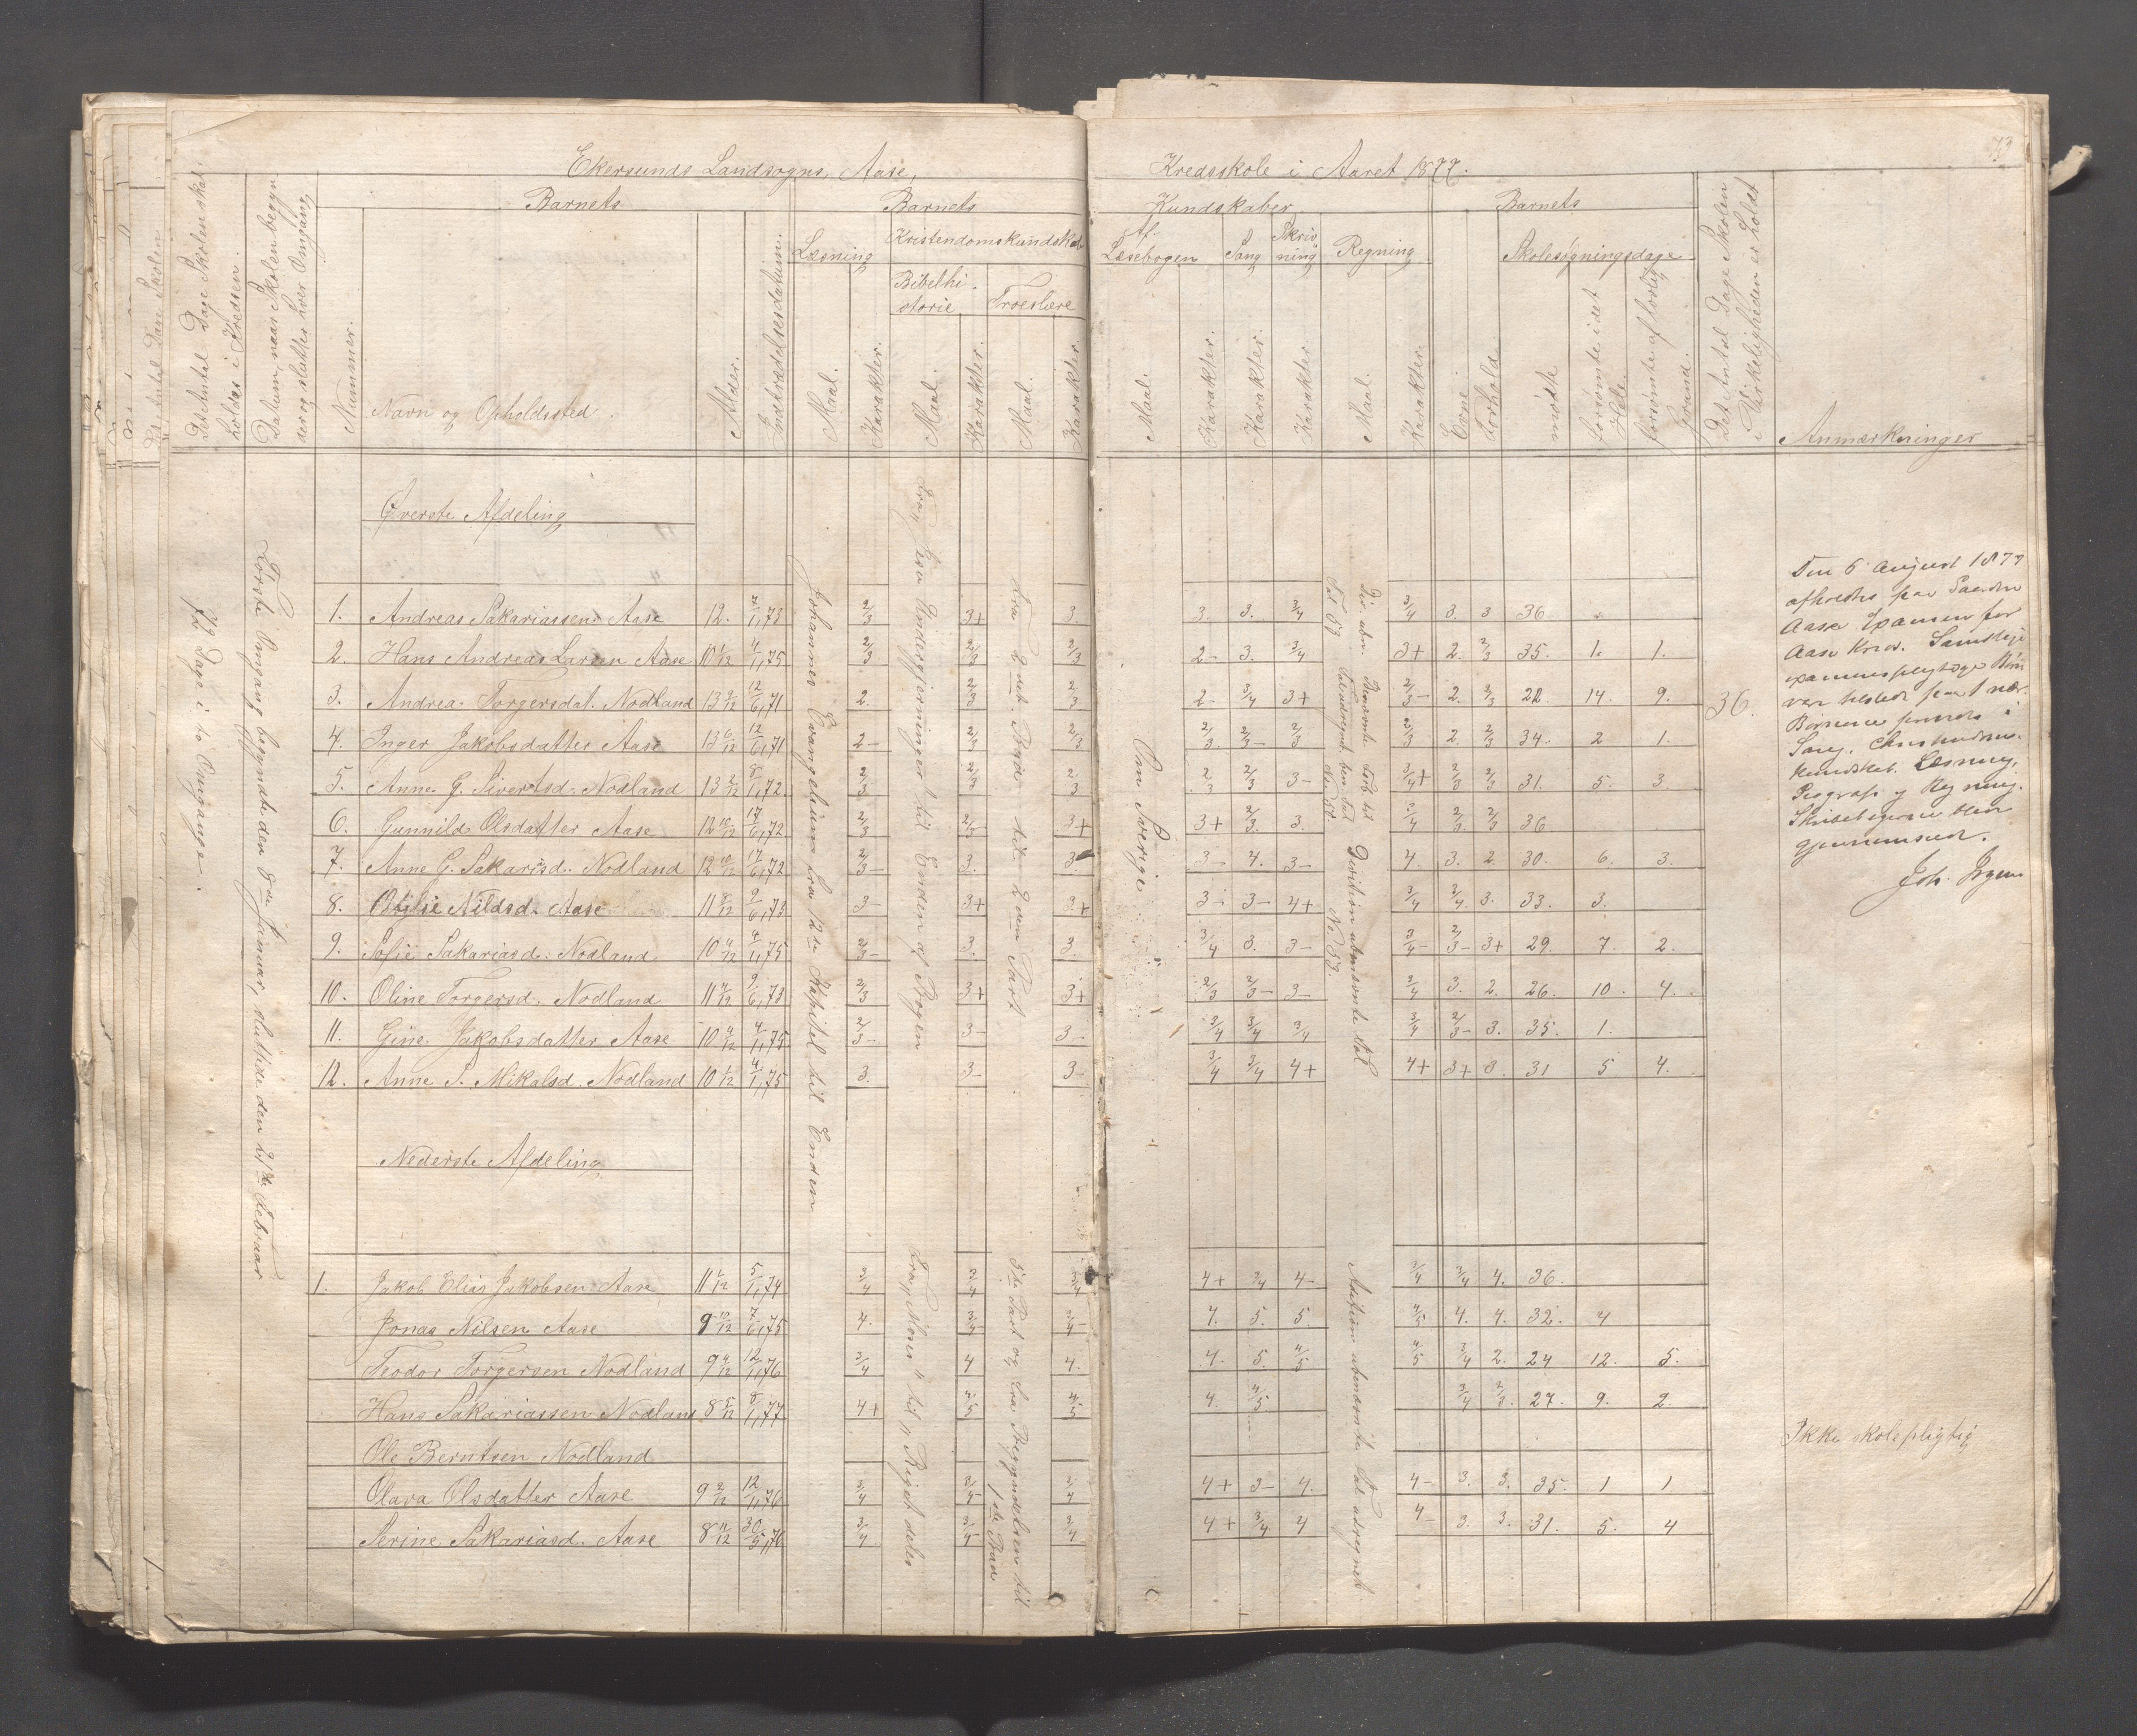 73
Ekersunds Landsogns, Aase, Kredsskole i Aaret 1877.
Det Antal Dage Skolen skal holdes i Kredsen.
Datum, naar Skolen begynder og slutter hver Omgang.
Nummer.
Barnets
Navn og Opholdssted.
Alder.
Indtrædelsesdatum.
Barnets Kundskaber
Læsning
Maal.
Karakter.
Kristendomskundskab
Bibelhistorie
Maal.
Karakter.
Troeslære
Maal.
Karakter.
Af Læsebogen
Maal.
Karakter.
Sang
Karakter.
Skrivning
Karakter
Regning
Maal.
Karakter.
Barnets
Evne
Forhold.
Skolesøgningsdage
mødte
forsømte i det Hele.
forsømte af lovlig Grund.
Det Antal Dage Skolen i Virkeligheden er holdt
Anmærkninger
72 Dage i to Omgange.
Første Omgang begyndte den 8de Januar, sluttede den 21de Februar
Øverste Afdeling
Johannes Evangelium fra 12te Kapitel til Enden
Fra Jesu Undergjerninger til Enden af Bogen
Fra 2det Bud til 2den Part
Om Sverige
Division ubenævnte Tal
1. Andreas Sakariassen Aase 12. 7/1,73 2/3 3+ 3. 3. 3. 3/4 3/4 3. 3 36
2. Hans Andreas Larsen Aase 10 1/12 4/1,75 2/3 2/3 2/3 2- 3. 3/4 3+ 2. 2/3 35. 1. 1.
3. Andrea Torgersdat. Nodland 13 9/12 12/6,71 2. 2/3 2/3 2- 3/4 3+ 2/3- 2. 2/3 22 14. 9.
4. Inger Jakobsdatter Aase 13 6/12 12/6,71 2- 2/3 2/3 2/3 2/3- 2/3 2/3 2. 2/3 34. 2 1.
5. Anne G. Sivertsd. Nodland 13 2/12 8/1,72 2/3 2/3 2/3 2/3 2/3 3- 3/4+ 2/3 2/3 31. 5. 3.
6. Gunnild Olsdatter Aase 12 10/12 17/6,72 2/3 2/3- 3+ 3+ 2/3 3. 3/4 2/3 2/3 36
7. Anne G. Sakarisd. Nodland 12 10/12 17/6,72 2/3- 3. 3. 3- 4. 3- 4. 3. 2. 30. 6. 3.
8. Otilie Nilsd. Aase 11 8/12 9/6,73 3- 3+ 3+ 3- 3- 4+ 3/4 3/4 3. 33. 3.
9. Sofie Sakariasd. Nodland 10 4/12 4/1,75 2/3- 3. 3. 3/4 3. 3- 3/4- 2/3- 3+ 29. 7. 2.
10. Oline Torgersd. Nodland 11 4/12 9/6,73 2/3 3+ 3+ 2/3 2/3- 3- 3/4 3. 2. 26. 10. 4.
11. Gine Jakobsdatter Aase 10 4/12 4/1,75 2/3- 3- 3- 3/4 3/4 3/4 3/4 2/3- 3. 35. 1.
12. Anne S. Mikalsd. Nodland 10 1/12 4/1,75 3. 3- 3- 3/4 3/4 4+ 4+ 3+ 3. 31 5 4.
36.
Den 6 August 1877
afholdtes paa Gaarden
Aase Examen for
Aase Kreds. Samtlige
examenspligtige Børn
var tilstede paa 1 nær.
Børnene prøvedes i
Sang, Christendoms-
kundskab, Læsning,
Geografi og Regning.
Skrivebøgerne blev
gjennemseet.
Nederste Afdeling
Fra "Moses" til "Riget deles
5te Part og fra Begyndelsen til 1ste Bud
Addition ubenævnte Tal udregnet
1. Jakob Elias Jakobsen Aase 11 2/12 5/1,74 3/4 3/4 3/4 4+ 3/4 4- 3/4 3/4 4. 36.
Jonas Nilsen Aase 9 10/12 7/6,75 4. 3/4- 3/4- 4. 5. 5. 4/5 4. 4. 32. 4
Teodor Torgersen Nodland 9 4/12 12/1,76 3/4 4 4. 4. 5. 4/5 4/5 3/4 2. 24 12. 5.
Hans Sakariassen Nodland 8 5/12 8/1,77 4+ 4/5 4/5 4. 4/5 3/4 2/3. 27. 9. 2.
Ole Berntsen Nodland Ikke skolepligtig
Olava Olsdatter Aase 9 2/12 12/1,76 3/4 3/4- 3/4 4+ 3- 4. 4- 3. 3. 35. 1 1
Serine Sakariasd. Aase 8 11/12 30/5,76 3/4 3/4- 3/4 4+ 3/4 4 4- 3. 3. 31. 5. 4